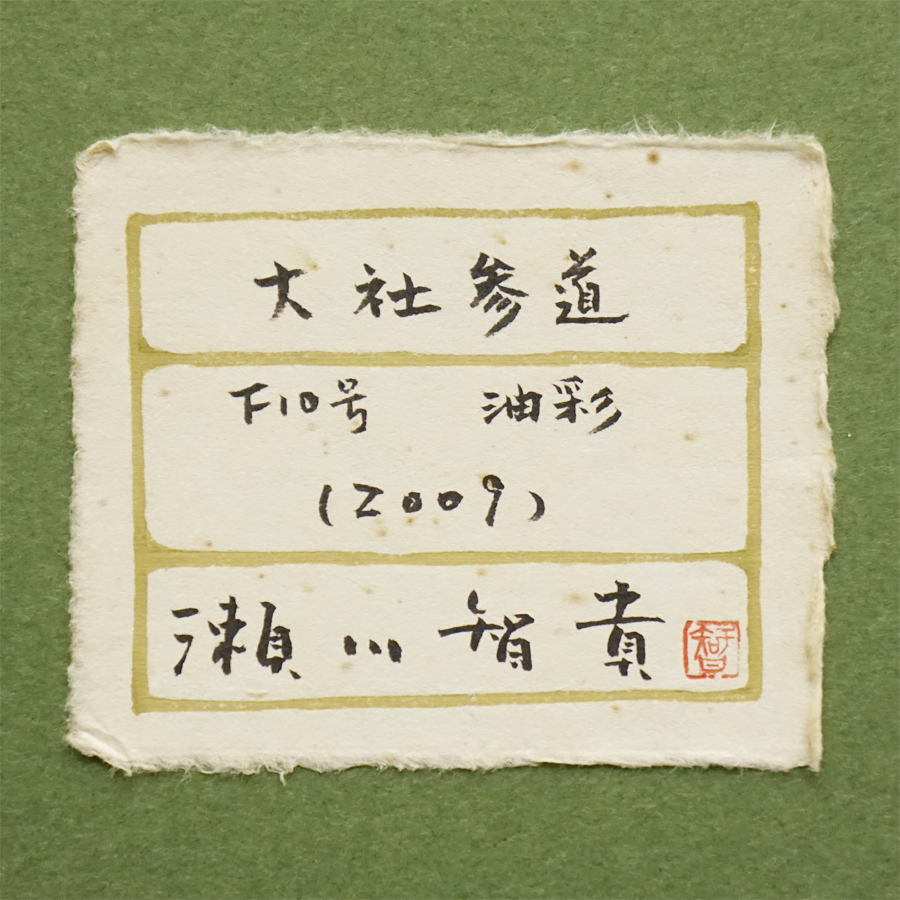 大社参道
F10号 油彩
(2009)
瀬川智貴